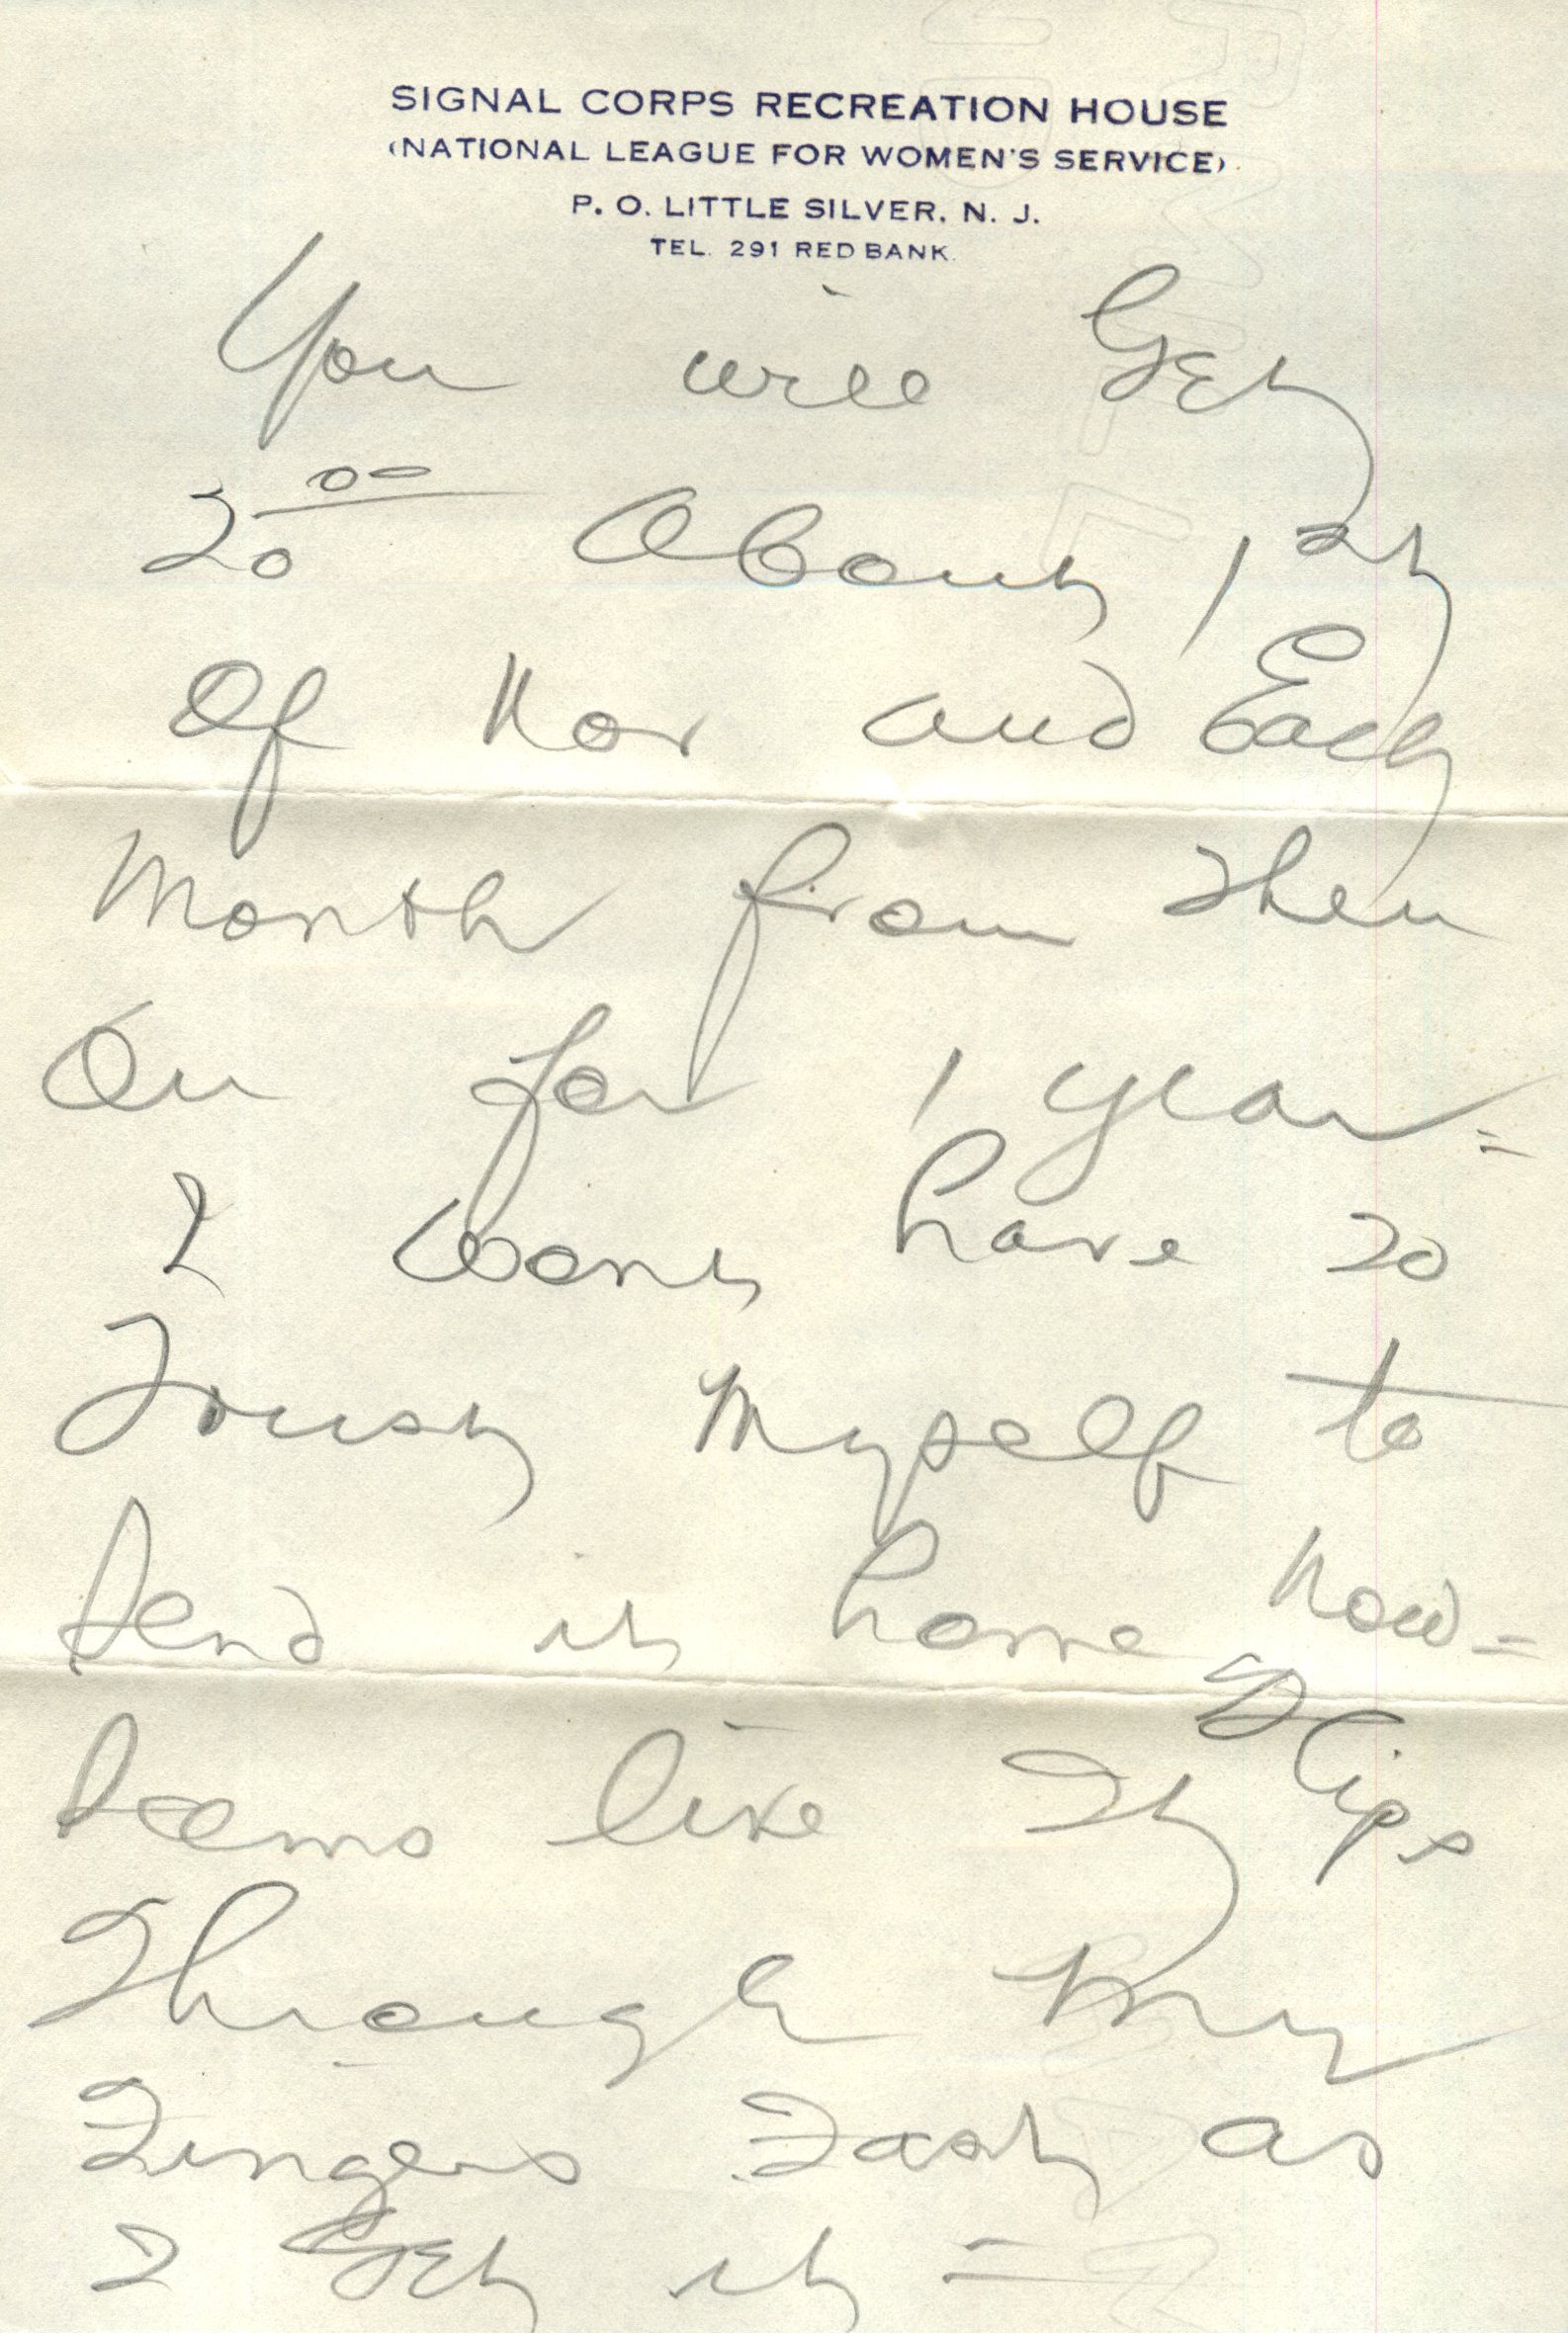 SIGNAL CORPS RECREATION HOUSE
(NATIONAL LEAGUE FOR WOMEN'S SERVICE)
P. O. LITTLE SILVER, N. J.
TEL. 291 RED BANK.
You will Get
20 00 About 1st
Of Nov and Each
Month from then
On for 1 year =
I wont have to
Trust Myself to
Send it home now =
Seems like It Slips
Through My
Fingers Fast as
I Get it =